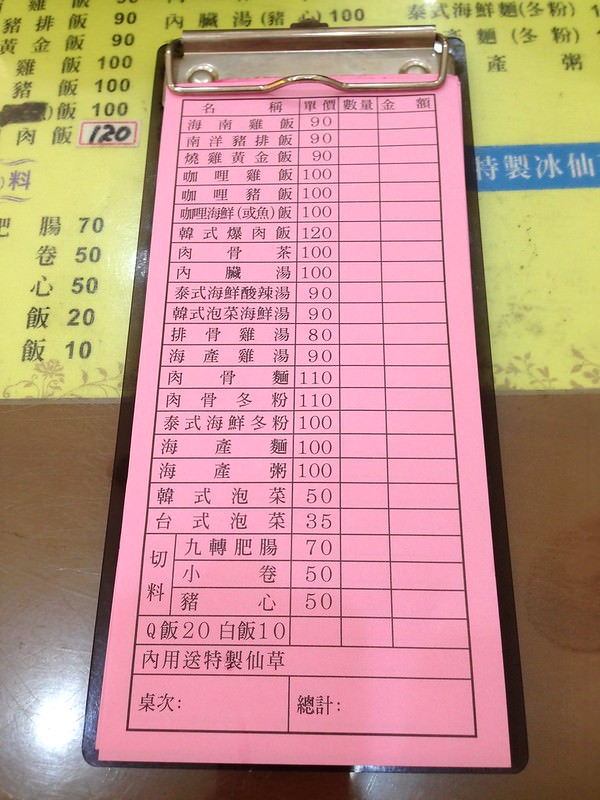 雞飯 90
豬排飯 90
黃金飯 90
雞飯 100
豬飯 100
)飯 100
肉飯 120
料
腸 70
卷 50
心 50
飯 20
飯 10
內臟湯(豬心)100
泰式海鮮麵(冬粉)
產麵(冬粉)1
產粥
特製冰仙草
名稱 單價 數量 金額
海南雞飯 90
南洋豬排飯 90
燒雞黃金飯 90
咖哩雞飯 100
咖哩豬飯 100
咖哩海鮮(或魚)飯 100
韓式爆肉飯 120
肉骨茶 100
內臟湯 100
泰式海鮮酸辣湯 90
韓式泡菜海鮮湯 90
排骨雞湯 80
海產雞湯 90
肉骨麵 110
肉骨冬粉 110
泰式海鮮冬粉 100
海產麵 100
海產粥 100
韓式泡菜 50
台式泡菜 35
切料
九轉肥腸 70
小卷 50
豬心 50
Q飯20 白飯10
內用送特製仙草
桌次: 總計: